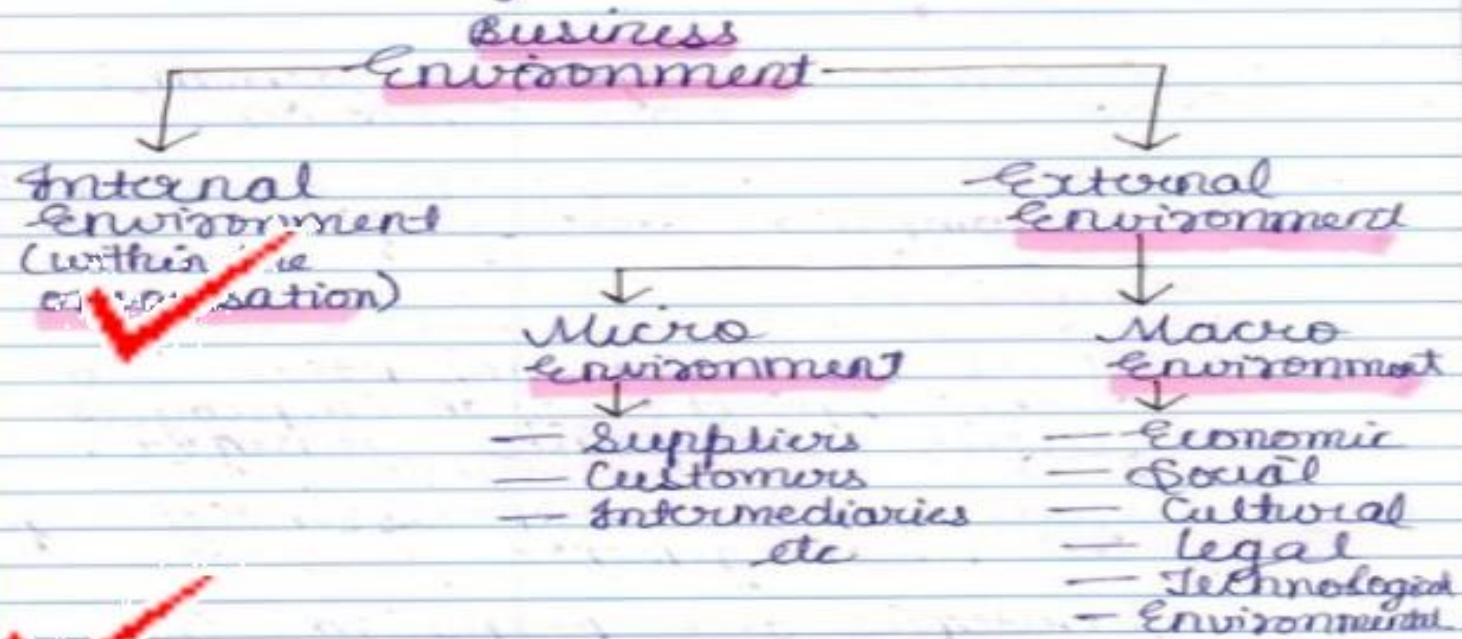 Business
Environment
Internal
Environment
(within
External
Environment
Micro
Environment
— Suppliers
— Customers
— Intermediaries
etc
Macro
Environment
— Economic
— Social
— Cultural
— Legal
— Technological
— Environmental